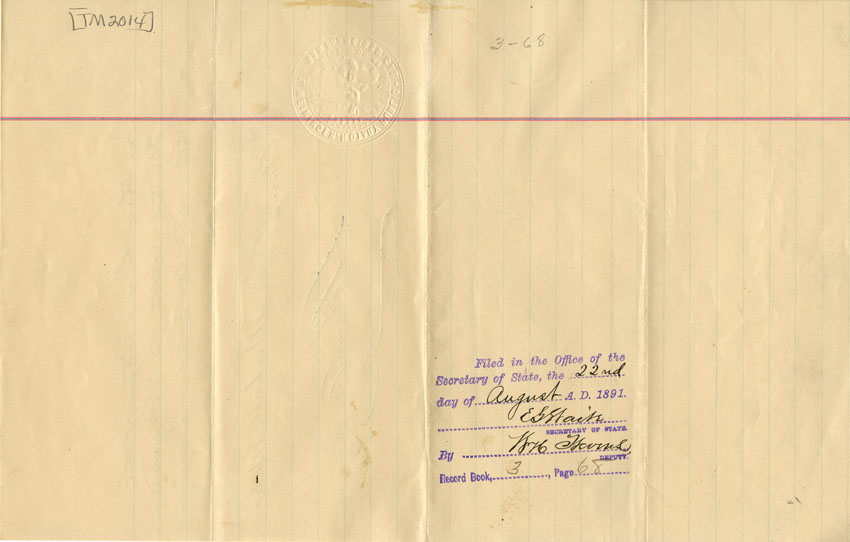 [TM2014]
3-68
Filed in the Office of the
Secretary of State, the 22nd
day of August A. D. 1891.
E G Waite
SECRETARY OF STATE.
By W H
DEPUTY.
Record Book, 3, Page 68